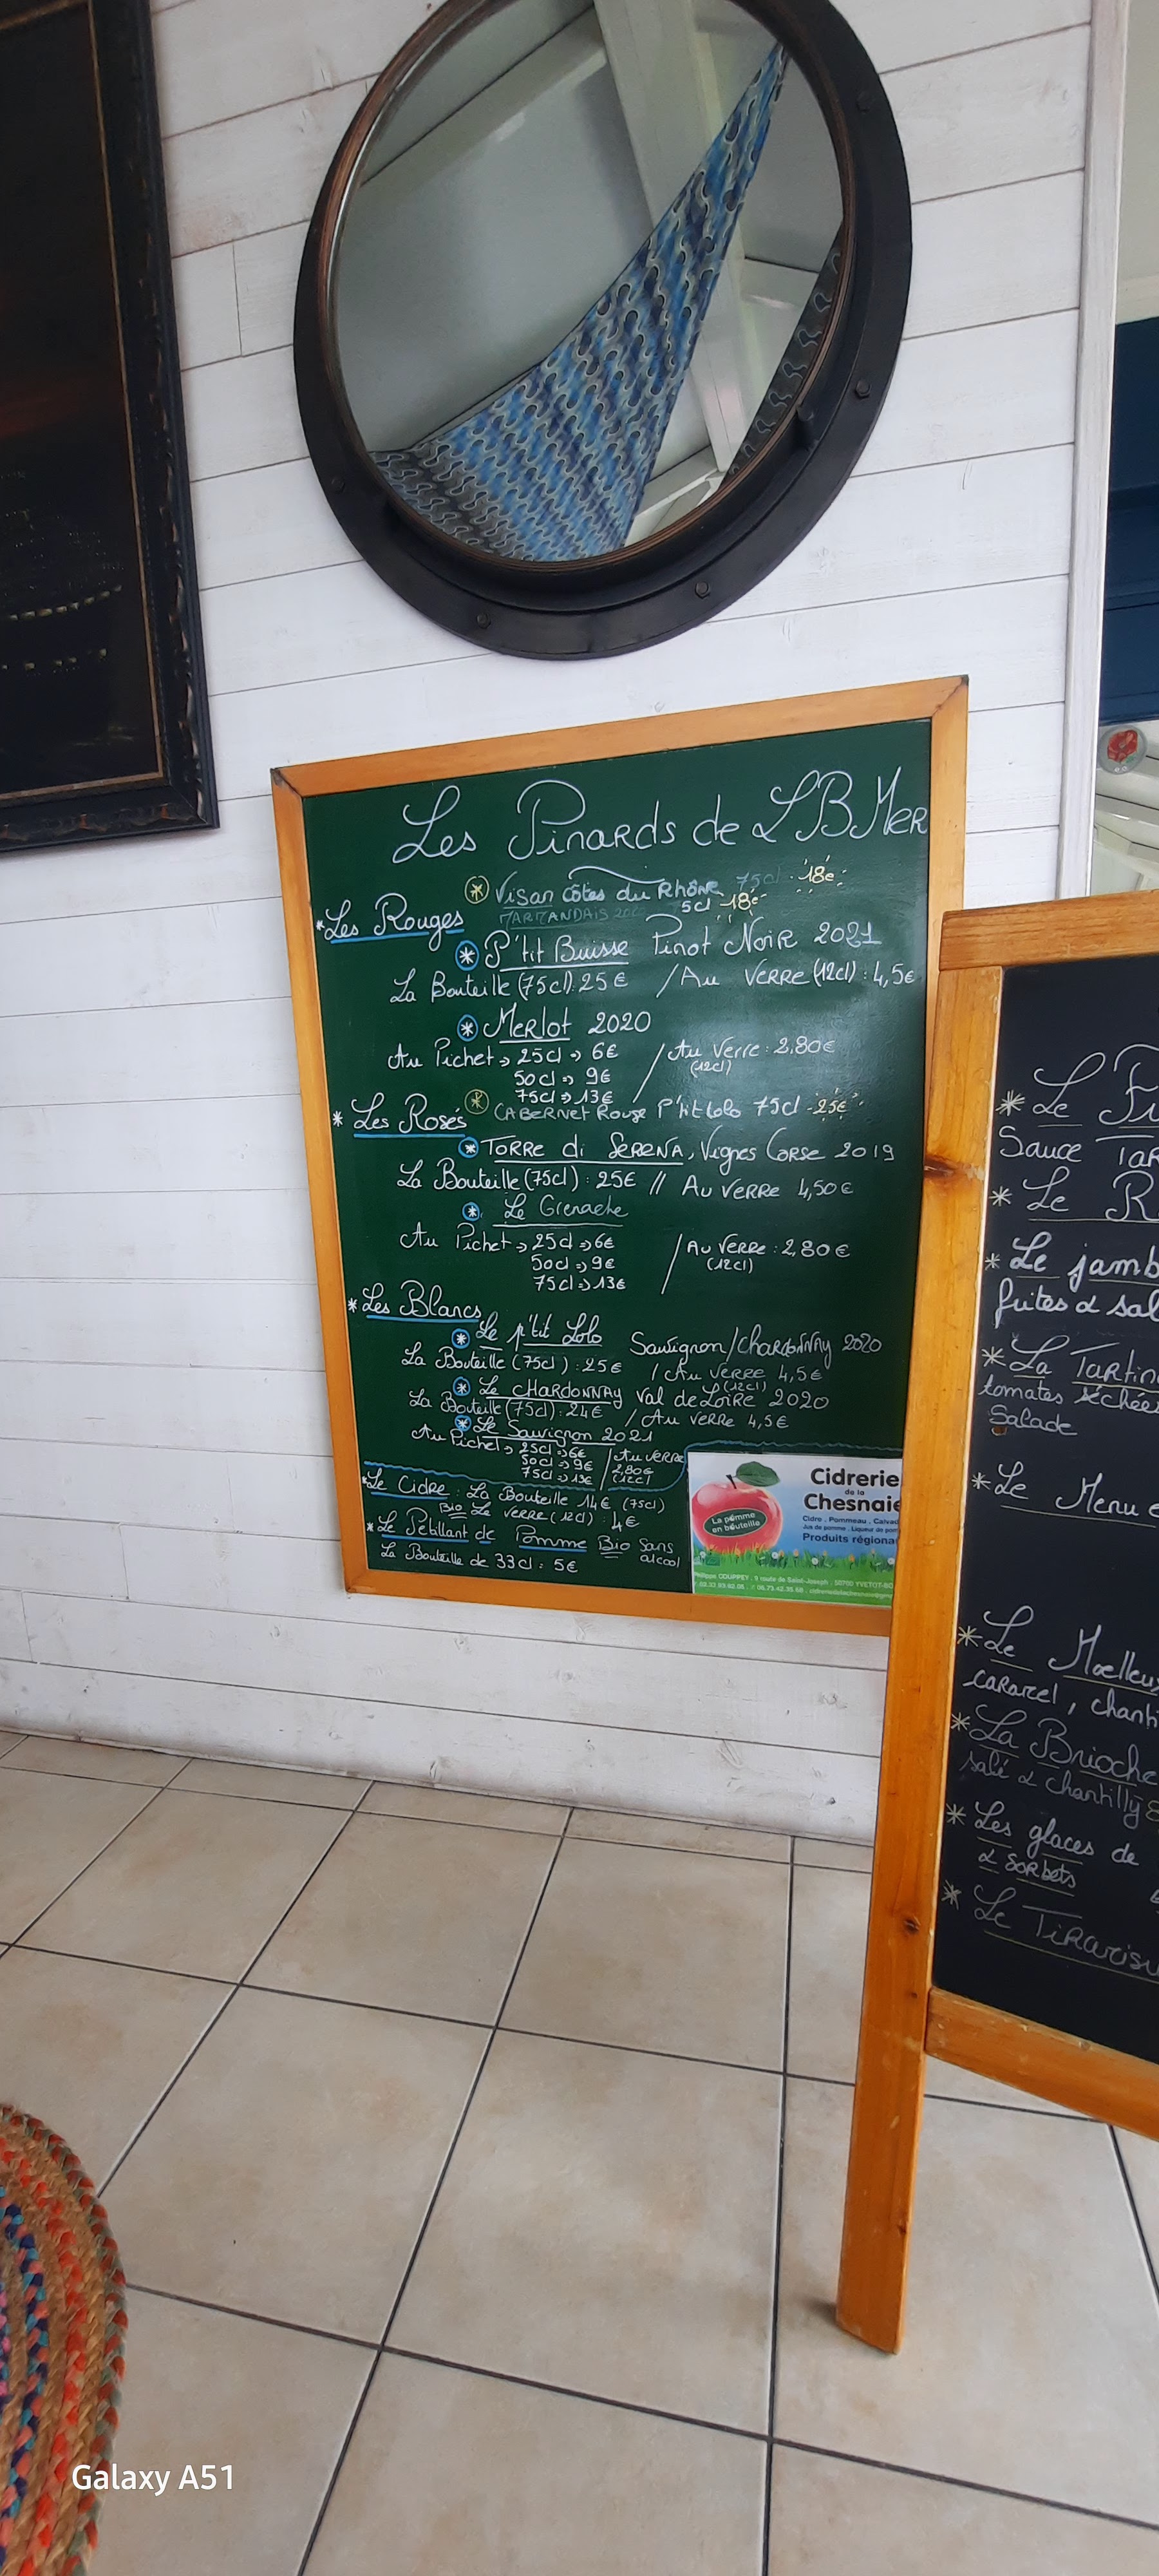 Les Pinards de LBMer
* Visan Côtes du Rhône 75cl 18€
MARMANDAIS 5cl 18€
* Les Rouges
* P'tit Buisse Pinot Noir 2021
La Bouteille (75cl): 25€ / Au Verre (12cl) : 4,5€
* Merlot 2020
Au Pichet → 25cl → 6€ / Au Verre : 2.80€
50cl → 9€ (12cl)
75cl → 13€
* Cabernet Rouge P'tit Lolo 75cl - 25€
* Les Rosés
* Torre di Serena, Vignes Corse 2019
La Bouteille (75cl) : 25€ // Au Verre 4,50€
* Le Grenache
Au Pichet → 25cl → 6€ / Au Verre : 2,80€
50cl → 9€ (12cl)
75cl → 13€
* Les Blancs
* Le p'tit Lolo Sauvignon/Chardonnay 2020
La Bouteille (75cl) : 25€ / Au Verre 4,5€
(12cl)
* Le Chardonnay Val de Loire 2020
La Bouteille (75cl) : 24€ / Au Verre 4,5€
* Le Sauvignon 2021
Au Pichet → 25cl → 6€ / Au Verre
50cl → 9€ 2,80€
75cl → 13€ (12cl)
* Le Cidre : La Bouteille 14€ (75cl)
Bio Le Verre (12cl) : 4€
* Le Pétillant de Pomme Bio Sans alcool
La Bouteille de 33cl : 5€
La pomme
en bouteille
Cidrerie
de la
Chesnaie
Cidre . Pommeau . Calvad
Jus de pomme . Liqueur de pom
Produits régiona
Philippe COUPPEY . 9 route de Saint-Joseph . 50700 YVETOT-BO
* Le
Sauce Tar
* Le R
* Le jamb
frites & sal
* La Tartin
tomates séchées
Salade
* Le Menu e
* Le Moelleux
caramel, chanti
* La Brioche
salé & chantilly
* Les glaces de
& sorbets
* Le Tiramisu
Galaxy A51